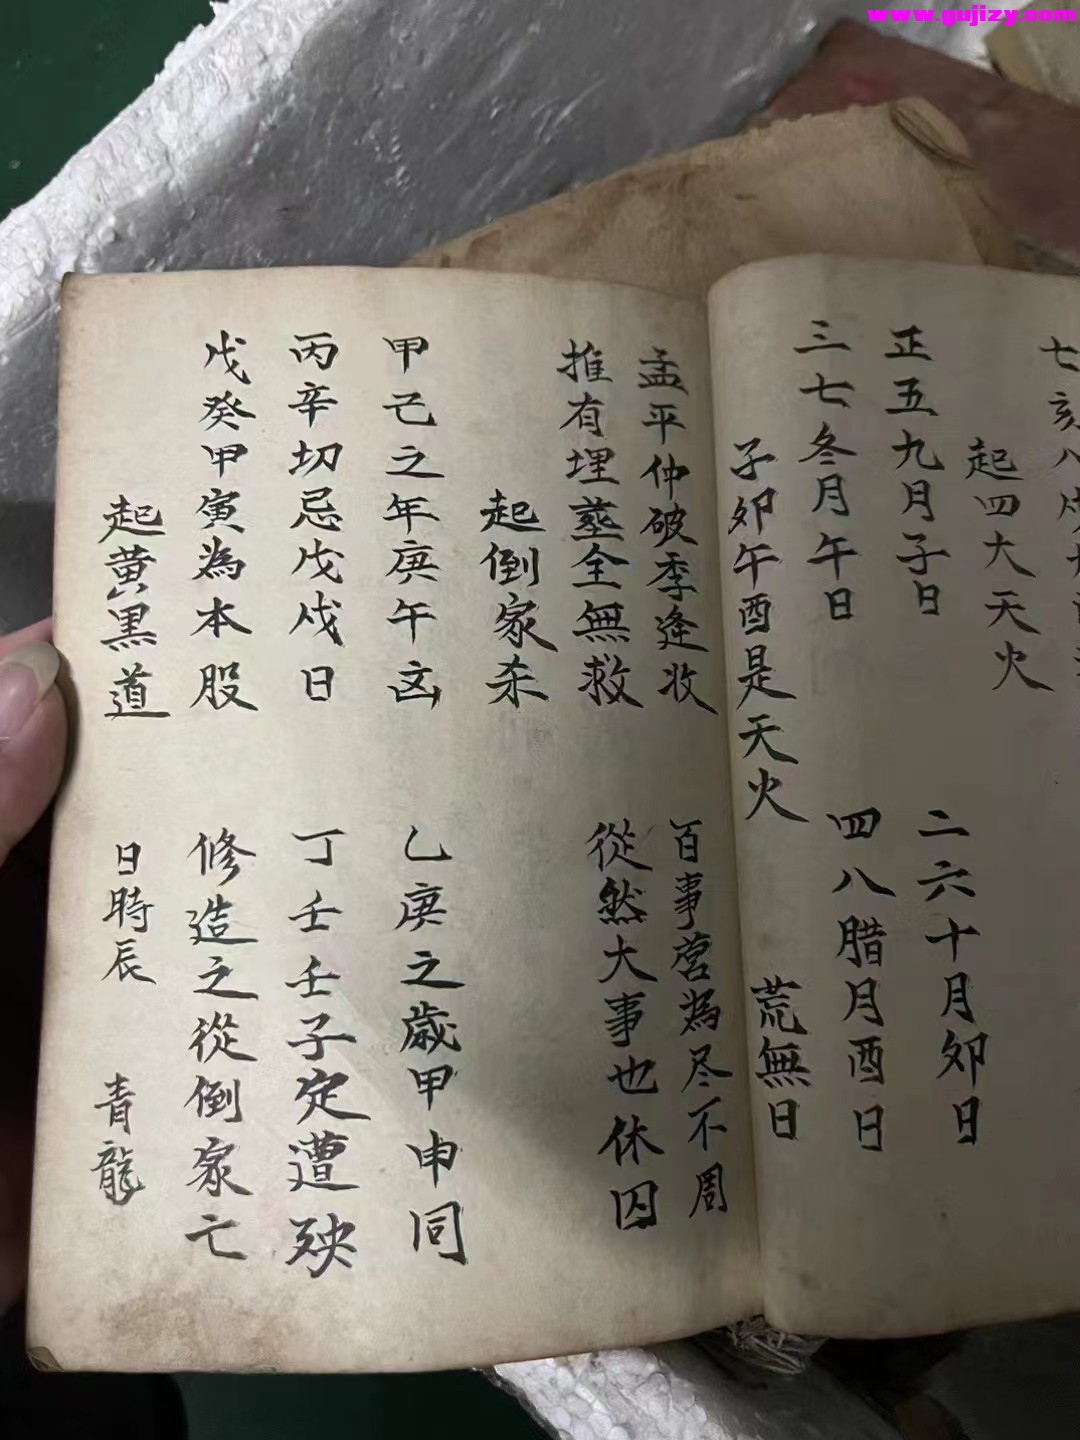 www.gujizy.com
七亥八
起四大天火
正五九月子日 二六十月卯日
三七冬月午日 四八腊月酉日
子卯午酉是天火 荒無日
孟平仲破季逢收 百事营為尽不周
推有埋塟全無救 從然大事也休囚
起倒家杀
甲己之年庚午凶 乙庚之歲甲申同
丙辛切忌戊戌日 丁壬壬子定遭殃
戊癸甲寅為本股 修造之從倒家亡
起黄黑道 日時辰 青龍